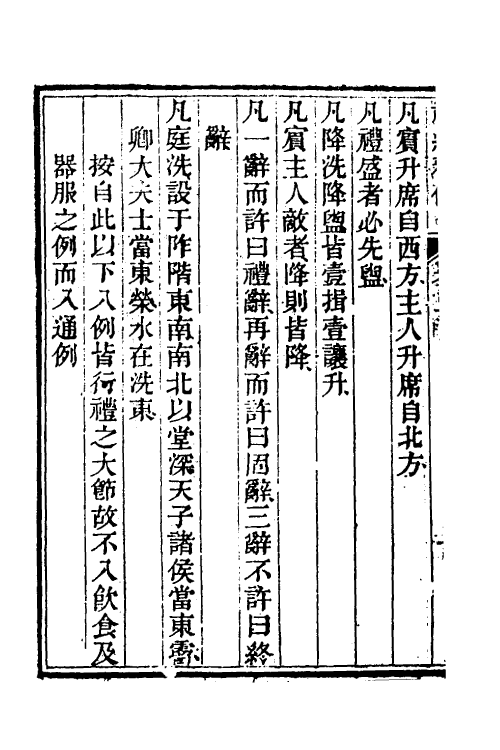 凡賓升席自西方主人升席自北方
凡禮盛者必先盥
凡降洗降盥皆壹揖壹讓升
凡賓主人敵者降則皆降
凡一辭而許曰禮辭再辭而許曰固辭三辭不許曰終
辭
凡庭洗設于阼階東南南北以堂深天子諸侯當東霤
卿大夫士當東榮水在洗東
按自此以下八例皆行禮之大節故不入飲食及
器服之例而入通例